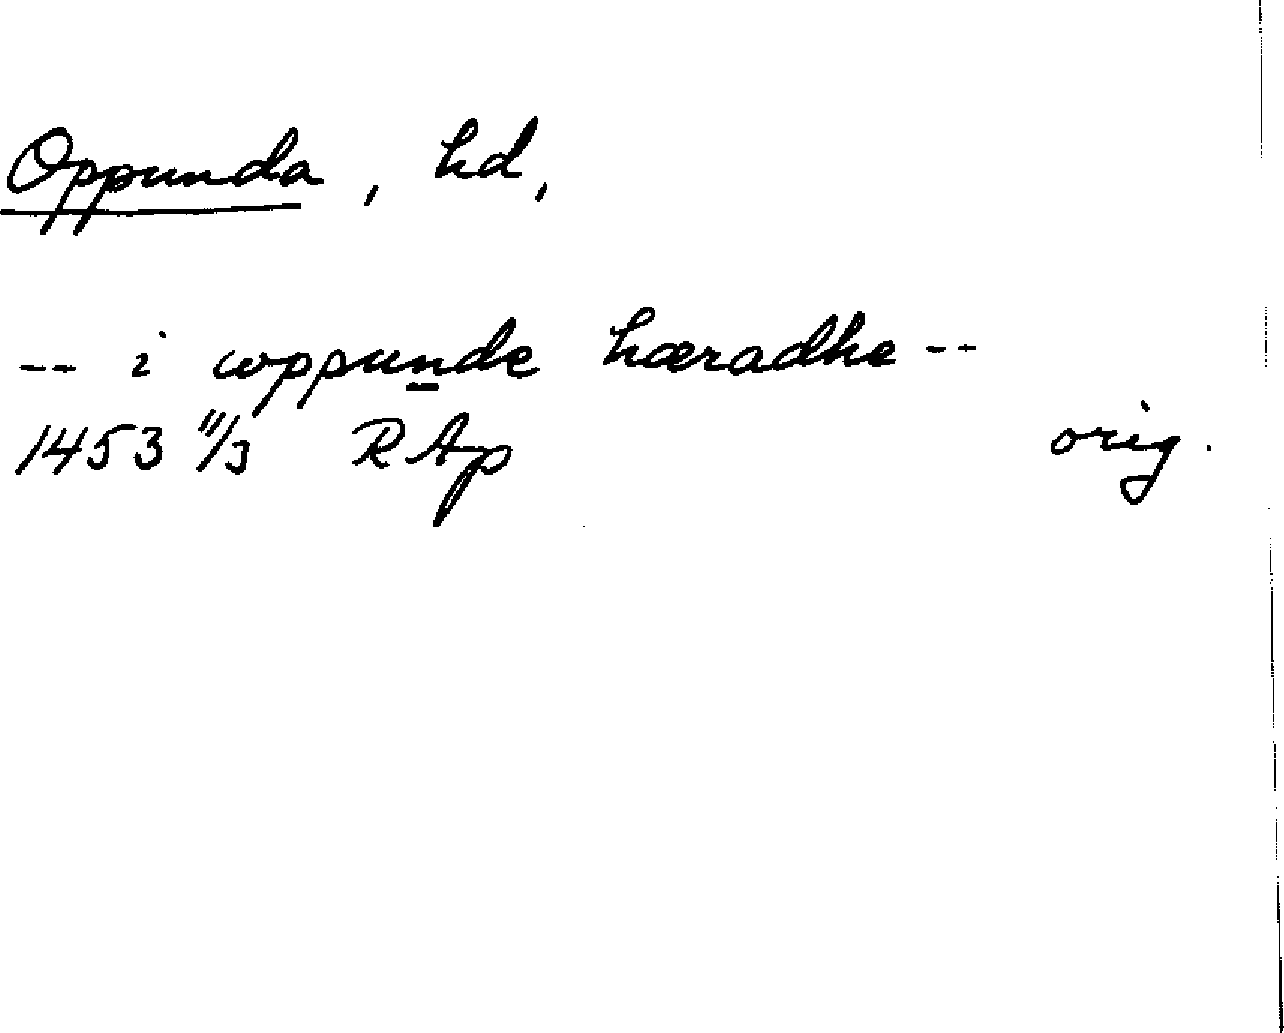 Oppunda, hd,
-- i woppunde hæradhe --
1453 11/3 RAp orig.